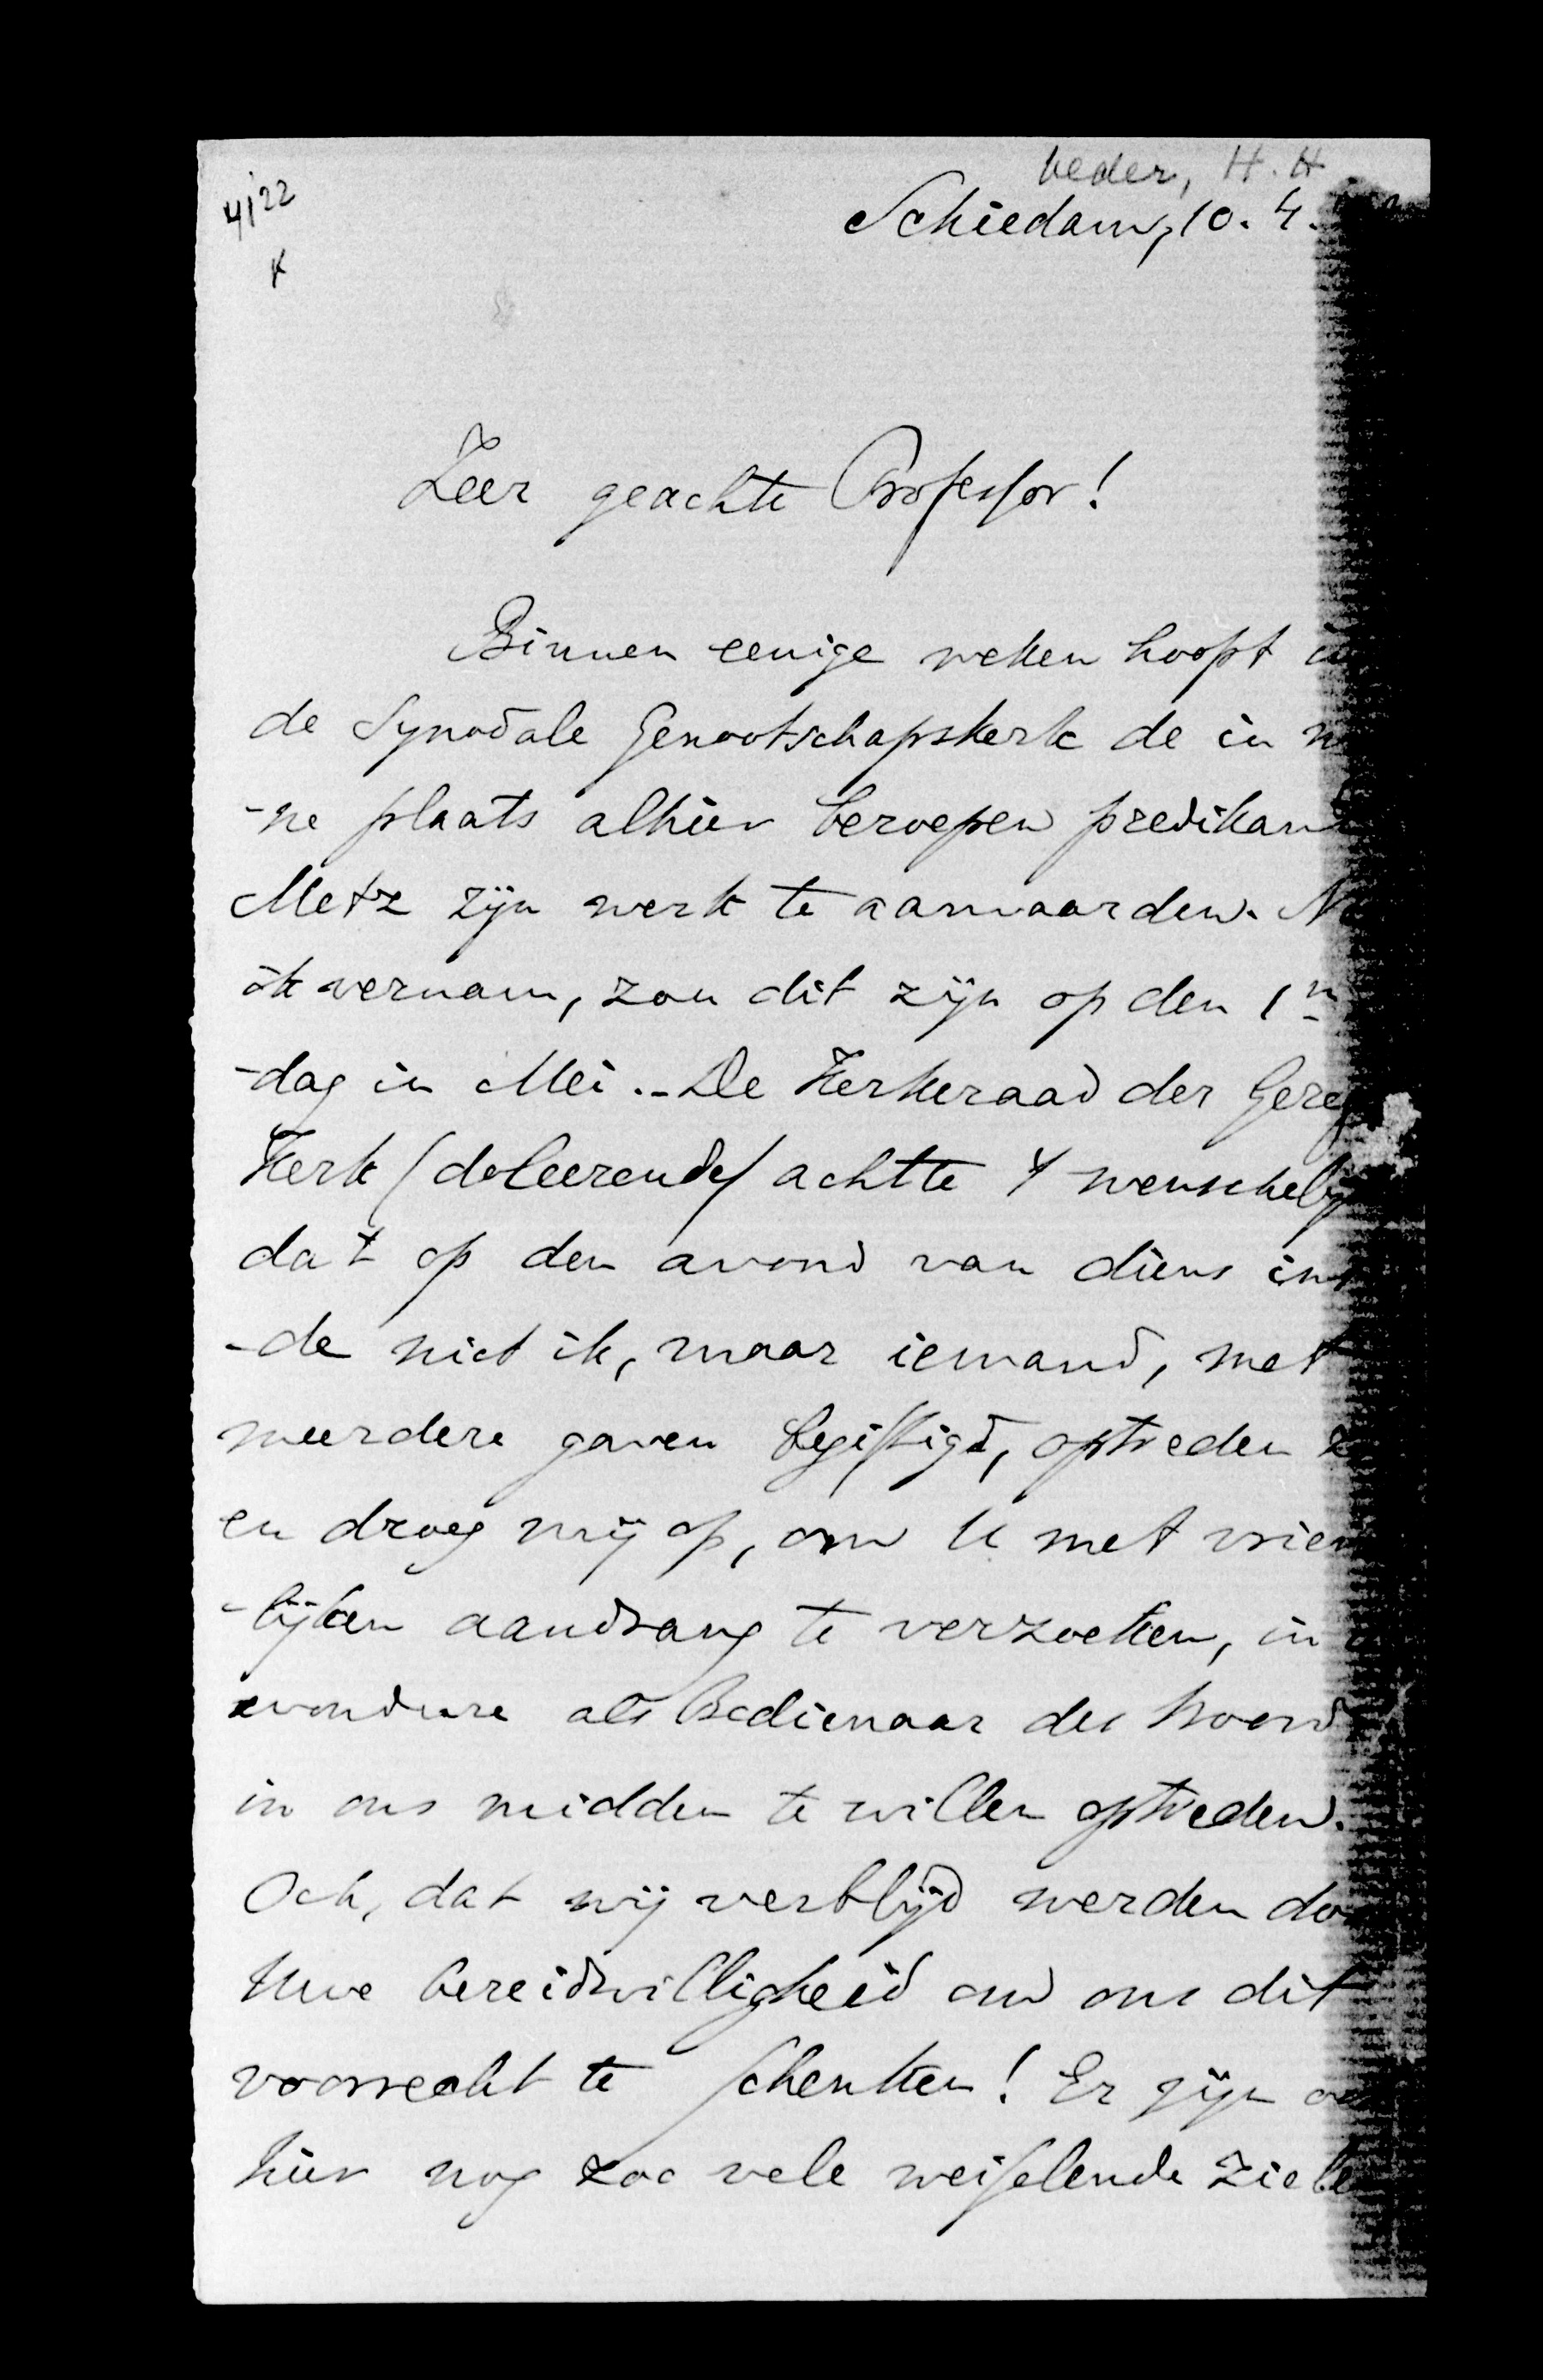 Veder, H. H.
4/22
K
Schiedam, 10. 4.
Zeer geachte Professor!
Binnen eenige weken hoopt
de Synodale Genootschapskerk de in
-ne plaats alhier beroepen predikan
Metz zijn werk te aanvaarden.
ik vernam, zou dit zijn op den 1n
-dag in Mei.- De Kerkeraad der Geref
Kerk (doleerende) achtte 't wenschelij
dat op den avond van diens in
-de niet ik, maar iemand, met
meerdere gaven begiftigd, optreden
en droeg mij op, om U met vrien
-lijken aandrang te verzoeken, in
avondure als Bedienaar des Woord
in ons midden te willen optreden.
Och, dat wij verblijd werden do
Uwe bereidwilligheid om ons dit
voorrecht te schenken! Er zijn
hier nog zoo vele weifelende ziele